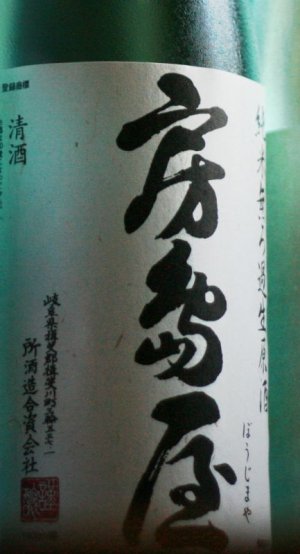 純米無ろ過生原酒
ぼうじまや
房島屋
登録商標
清酒
岐阜県揖斐郡揖斐川町三輪
所酒造合資会社